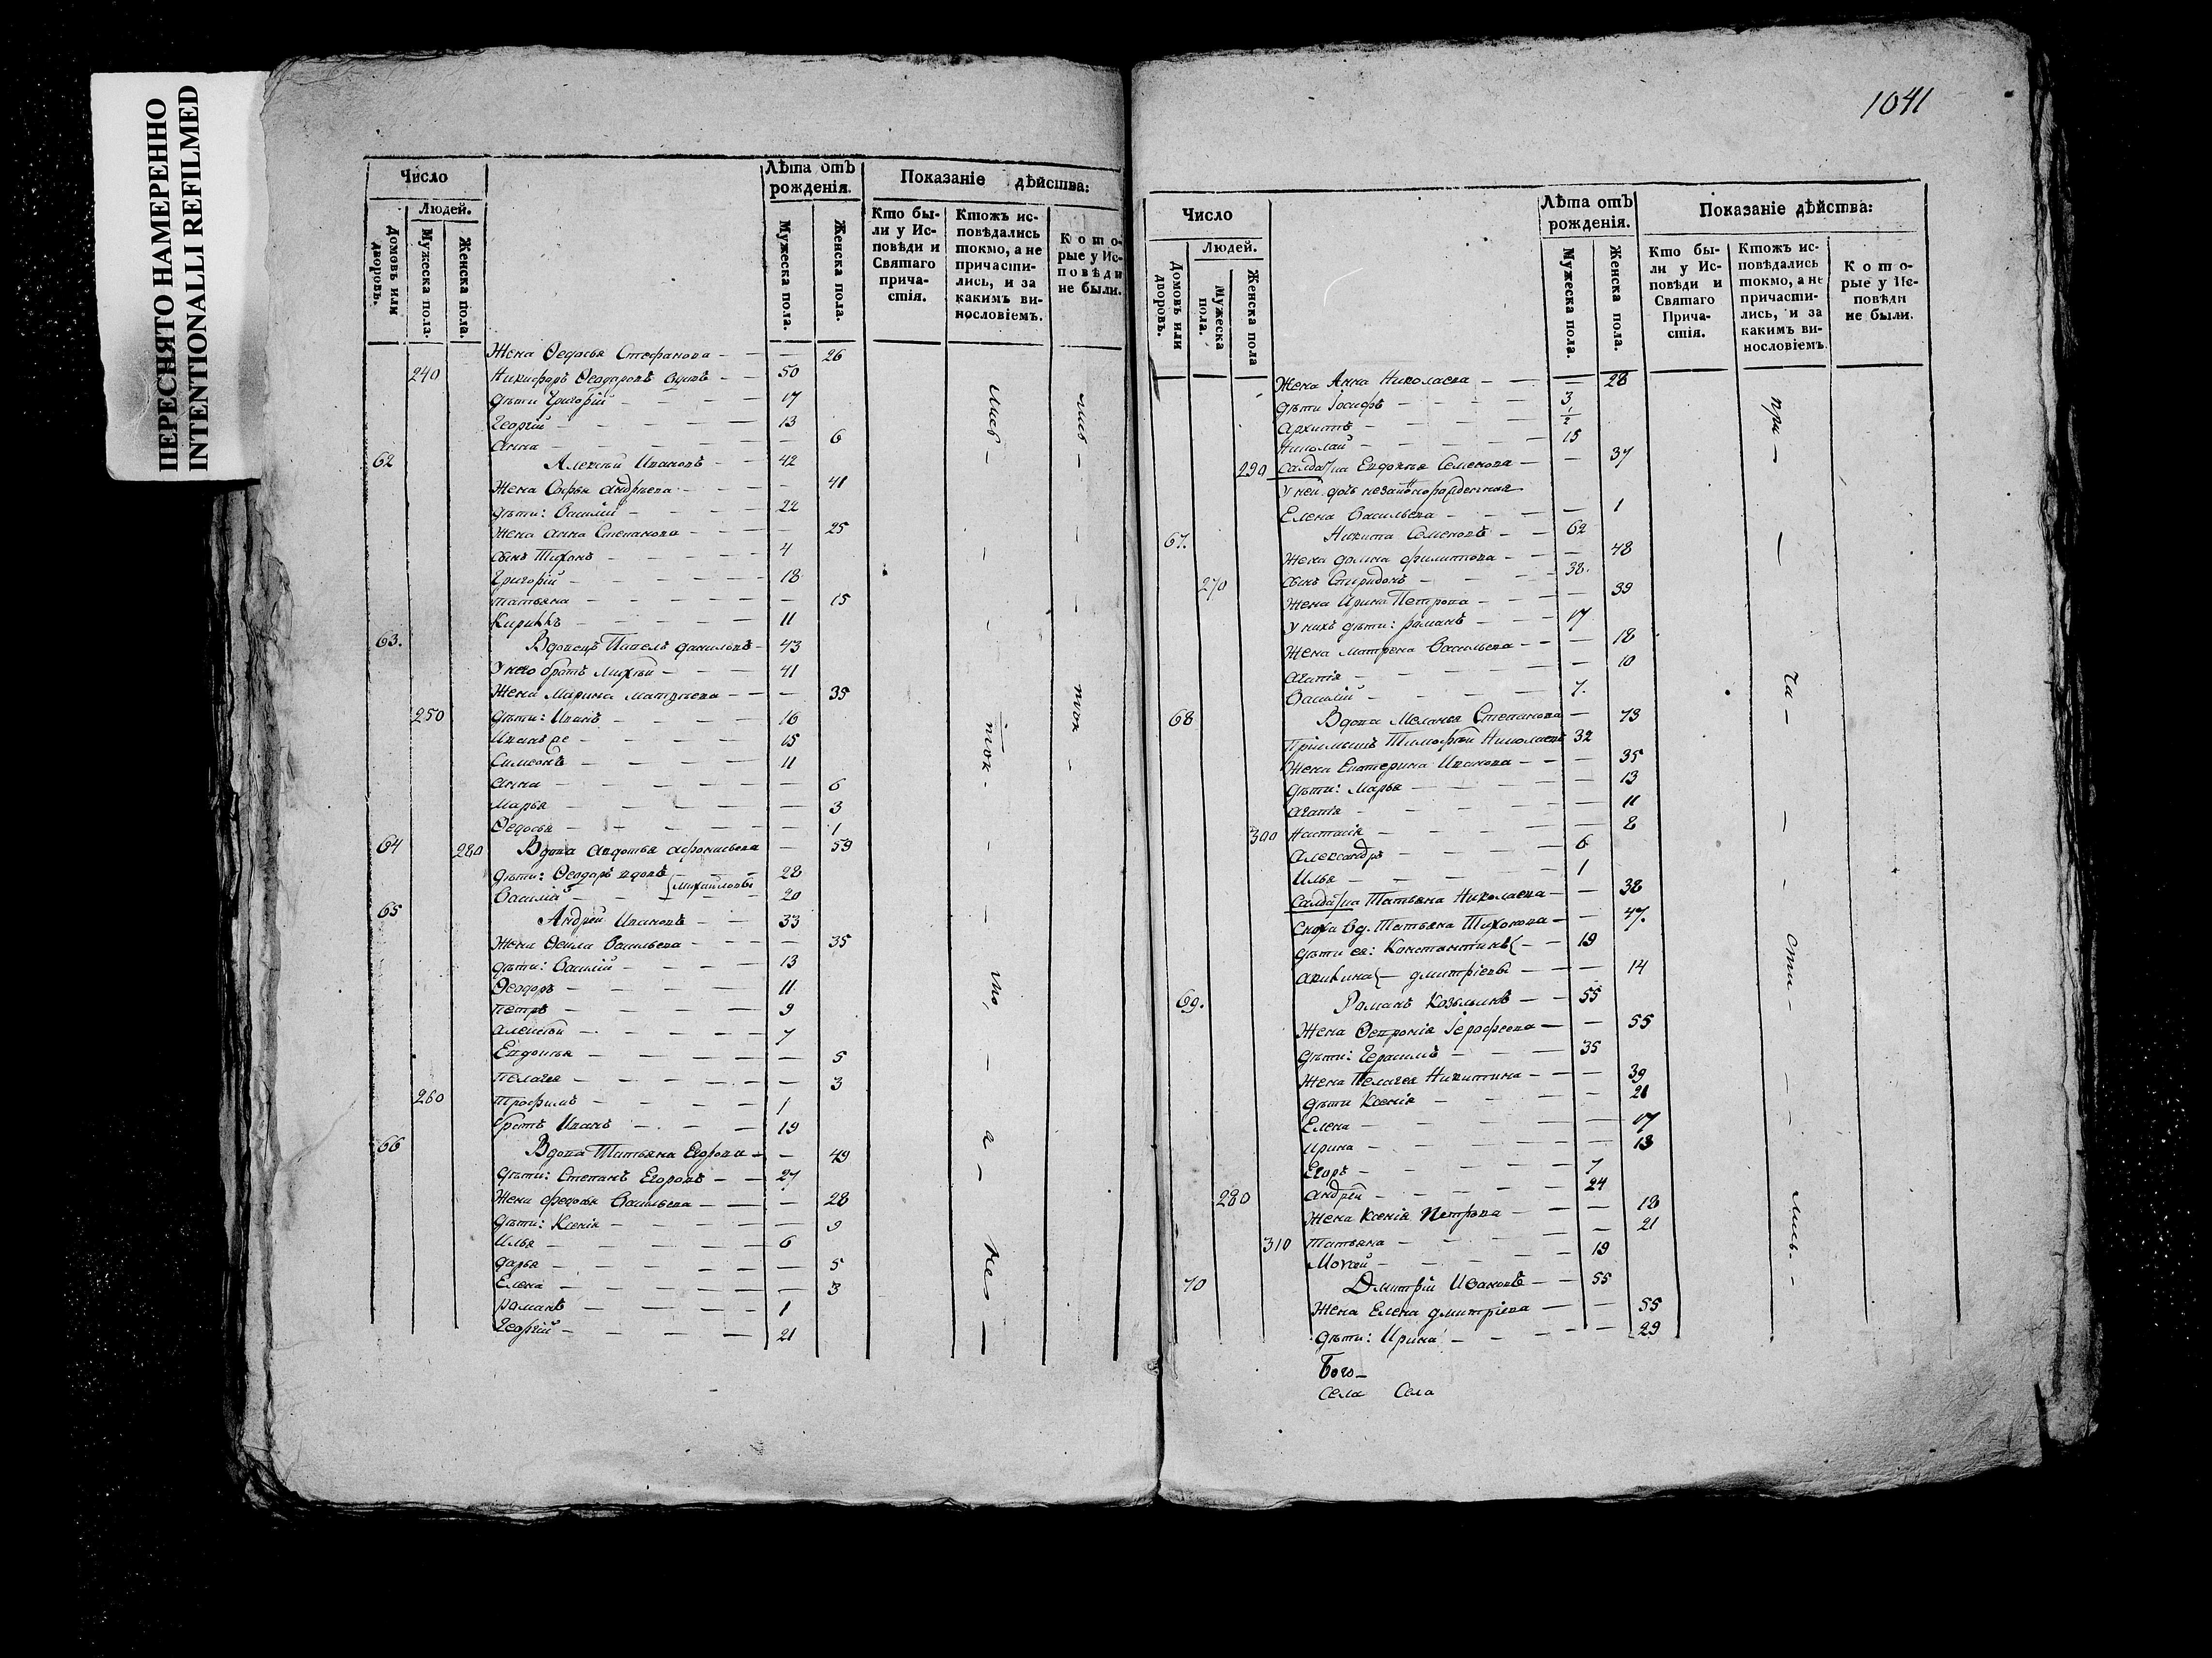 ПЕРЕСНЯТО НАМЕРЕННО
INTENTIONALLI REFILMED
Число
Людей.
Домовъ или дворовъ.
Мужеска пола.
Женска пола.
Лѣта отъ рожденія.
Мужеска пола.
Женска пола.
Показаніе дѣйства:
Кто были у Исповѣди и Святаго причастія.
Ктожъ исповѣдались токмо, а не причастились, и за какимъ винословіемъ.
Которые у Исповѣди не были.
Жена Ѳедосья Стефанова — — 26
240 Никифоръ Ѳеодоровъ — 50
дѣти Григорій — 17
Георгій — 13
Анна — — 6
62 Алексѣй Ивановъ — 42
Жена Софья Андреева — — 41
дѣти: Василій — 22
Жена Анна Степанова — — 25
сынъ Тихонъ — 4
Григорій — 18
Татьяна — — 15
Кирикъ — 11
63. Вдовецъ Павелъ Даниловъ — 43
У него братъ Михѣй — 41
Жена Марина Матвѣева — — 35
250 дѣти: Иванъ — 16
Иванъ же — 15
Симеонъ — 11
Анна — — 6
Марья — — 3
Ѳедосья — — 1
64 280 Вдова Авдотья Афонасьева — 59
дѣти: Ѳеодоръ вдовъ — 28
Василій — } Михайловы — 20
65 Андрей Ивановъ — 33
Жена Ѳекла Васильева — — 35
дѣти: Василій — 13
Ѳеодоръ — 11
Петръ — 9
Алексѣй — 7
Евдокья — — 5
Пелагея — — 3
260 Трофимъ — 1
братъ Иванъ — 19
66 Вдова Татьяна Егорова — — 49
дѣти: Степанъ Егоровъ — 27
Жена Федосья Васильева — — 28
дѣти: Ксенія — — 9
Илья — 6
Дарья — — 5
Елена — — 3
Романъ — 1
Георгій — 21
лись — ток — мо, — а — не —
1041
Число
Людей.
Домовъ или дворовъ.
Мужеска пола.
Женска пола
Лѣта отъ рожденія.
Мужеска пола.
Женска пола.
Показаніе дѣйства:
Кто были у Исповѣди и Святаго Причастія.
Ктожъ исповѣдались токмо, а не причастились, и за какимъ винословіемъ.
Которые у Исповѣди не были.
Жена Анна Николаева — — 28
дѣти Іосифъ — 3
Архиппъ — 1/2
Николай — 15
290 Салдатка Евдокья Семенова — — 37
У ней дочь незаконнорожденная
Елена Васильева — — 1
67. Никита Семеновъ — 62
Жена Домна Филиппова — — 48
270 сынъ Спиридонъ — 38.
Жена Ирина Петрова — — 39
У нихъ дѣти: Романъ — 17
Жена Матрена Васильева — — 18
Агапія — — 10
Василій — 7.
68 Вдова Меланья Степанова — 73
Пріимышъ Тимофѣй Николаевъ 32
Жена Екатерина Иванова — — 35
дѣти: Марья — — 13
Агапія — — 11
300 Наталія — — 8
Александръ — 6
Илья — 1
Салдатка Татьяна Николаева — — 38
сноха вд. Татьяна Тихонова — — 47.
дѣти ея: Константинъ { — 19
Акилина { — Дмитріевы — — 14
69. Романъ Козьминъ — 55
Жена Ѳевронія Іерофеева — — 55
дѣти: Герасимъ — 35
Жена Пелагея Никитина — — 39
дѣти Ксенія — — 21
Елена — — 17
Ирина — — 13
Егоръ — 7
280 Андрей — 24
Жена Ксенія Петрова — — 18
310 Татьяна — — 21
Моѵсей — 19
70 Дмитрій Ивановъ — 55
Жена Елена Дмитріева — — 55
дѣти: Ирина — — 29
при — ча — сти — лись —
Бого—
села Села